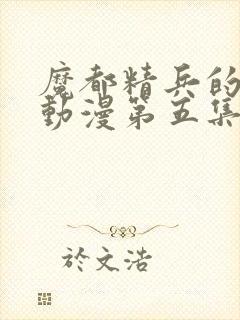 魔都精兵的
動漫第五集
於文浩